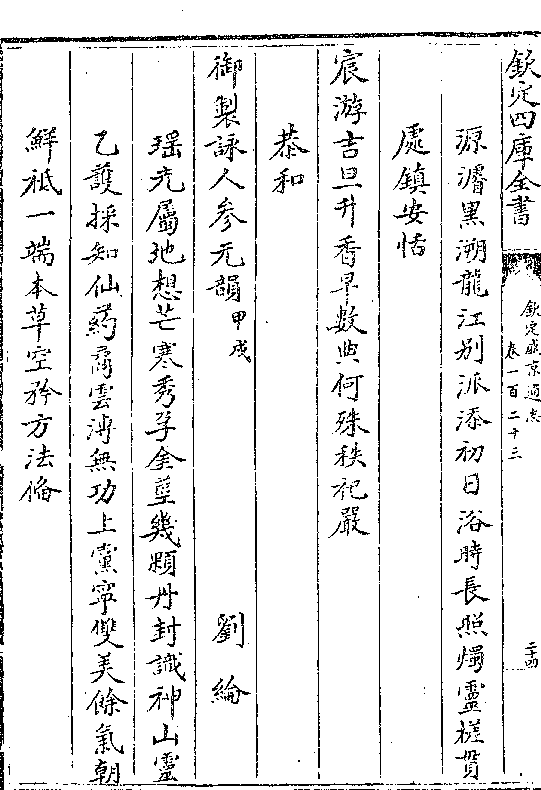 欽定四庫全書
欽定盛京通志
卷一百二十三
二十四
源濬黑溯龍江别派添初日浴時長照燭靈槎貫
處鎮安恬
宸游吉旦升香早數典何殊秩祀嚴
恭和
御製詠人參元韻甲戌
劉綸
瑶光屬地想芒寒秀孕全莖幾顆丹封識神山靈
乙護採知仙药矞雲溥無功上黨寧雙美餘氣朝
鮮祗一端本草空矜方法備